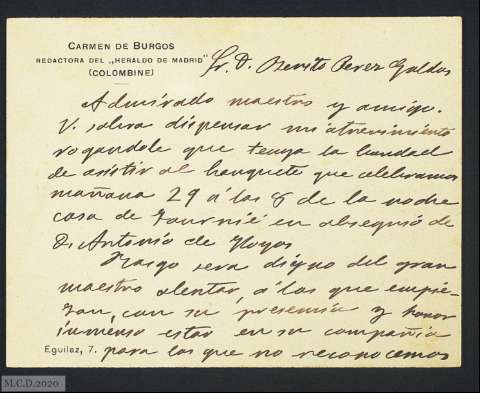 CARMEN DE BURGOS
REDACTORA DEL „HERALDO DE MADRID"
(COLOMBINE)
Sr. D. Benito Perez Galdos
Admirado maestro y amigo.
V. sabra dispensar mi atrevimiento
rogandole que tenga la bondad
de asistir al banquete que celebramos
mañana 29 á las 8 de la noche
casa de Tournié en obsequio de
D. Antonio de Hoyos
Rasgo sera digno del gran
maestro alentar, á los que empie-
zan, con su presencia y honor
inmenso estar en su compañia
para los que no reconocemos
Eguilaz, 7.
M.C.D.2020